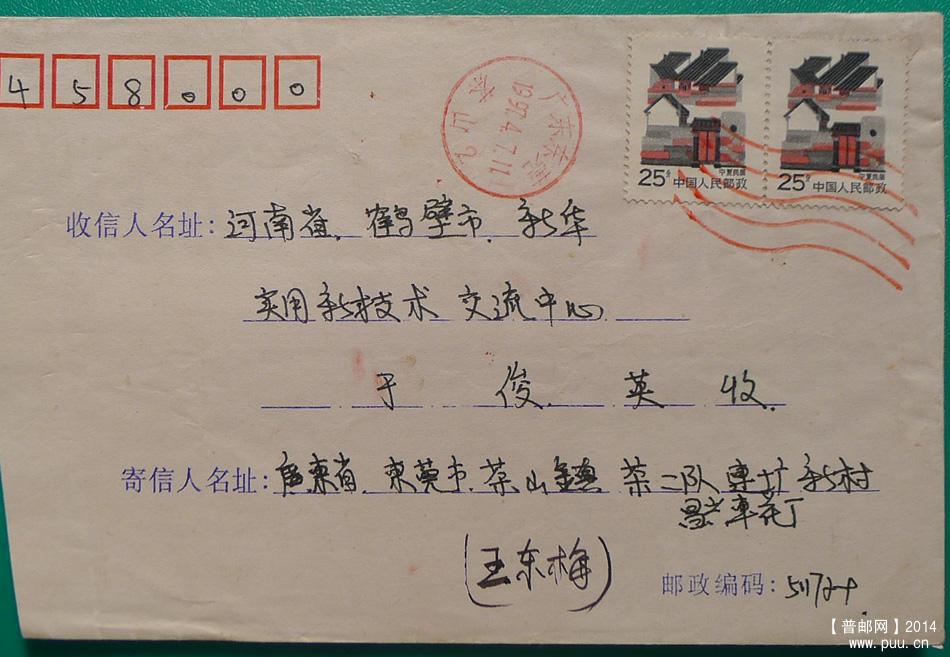 458000
广东东莞
1997.4.7.17
茶山
25分 中国人民邮政 宁夏民居
25分 中国人民邮政 宁夏民居
收信人名址：河南省、鹤壁市、新华
实用新技术 交流中心
于 俊 英 收
寄信人名址：廣東省、東莞市、茶山鎮 茶二队 新村
(王东梅)
邮政编码：511724
【普邮网】2014
www.puu.cn